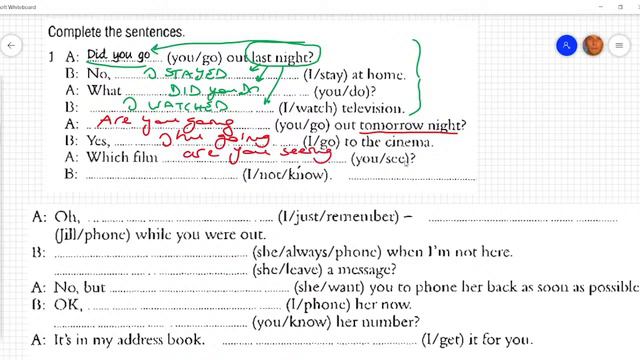 soft Whiteboard
Complete the sentences.
1 A: Did you go (you/go) out last night?
B: No, I STAYED (I/stay) at home.
A: What DID you DO (you/do)?
B: I WATCHED (I/watch) television.
A: Are you going (you/go) out tomorrow night?
B: Yes, I going (I/go) to the cinema.
A: Which film are you seeing (you/see)?
B: (I/not/know).
A: Oh, (I/just/remember) –
(Jill/phone) while you were out.
B: (she/always/phone) when I'm not here.
(she/leave) a message?
A: No, but (she/want) you to phone her back as soon as possible
B: OK, (I/phone) her now.
(you/know) her number?
A: It's in my address book. (I/get) it for you.